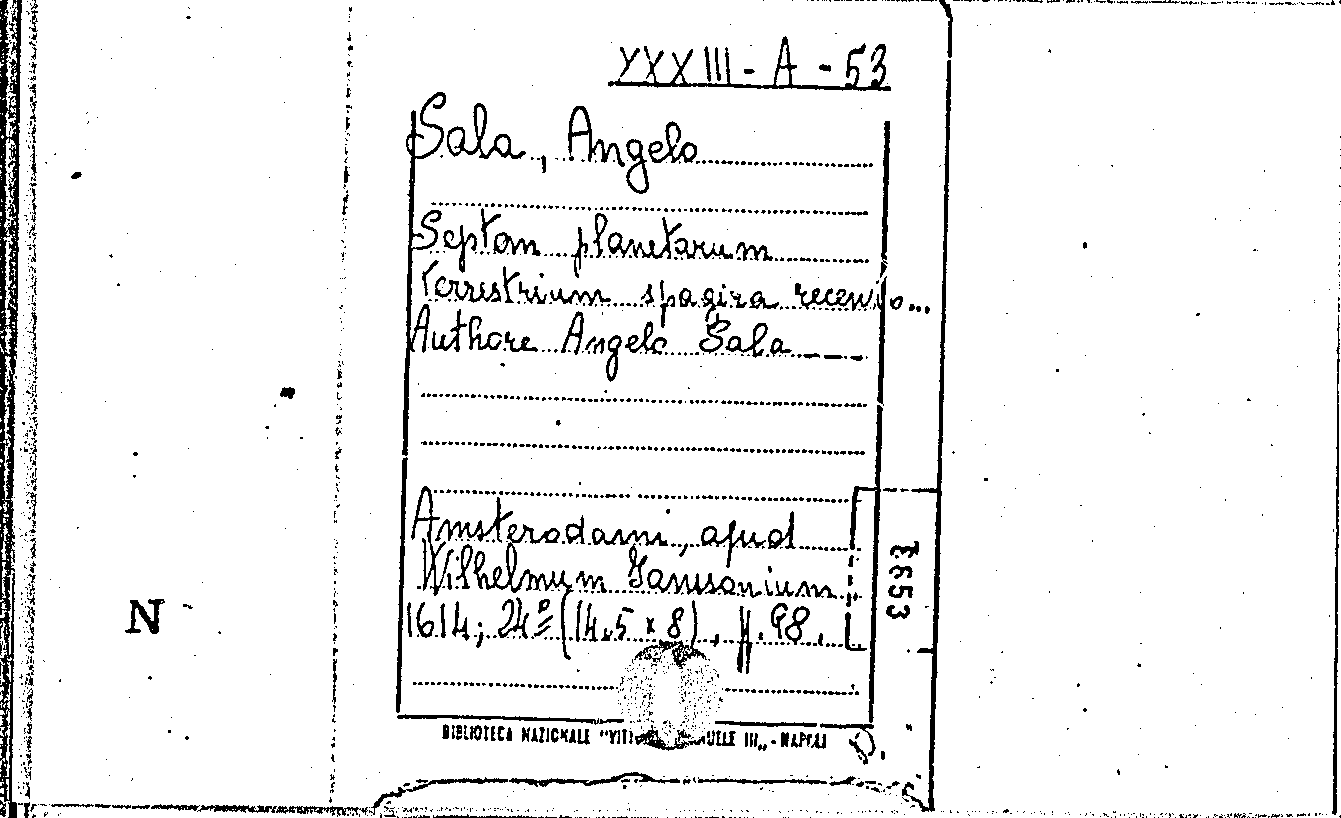 XXXIII - A - 53
Sala, Angelo
Septem planetarum
terrestrium spagira recensio...
Authore Angelo Sala
Amsterodami, apud
Wilhelmum Jansonium
1614; 24º (14,5 x 8), p. 98.
N
BIBLIOTECA NAZIONALE "VITT III„ - NAPOLI